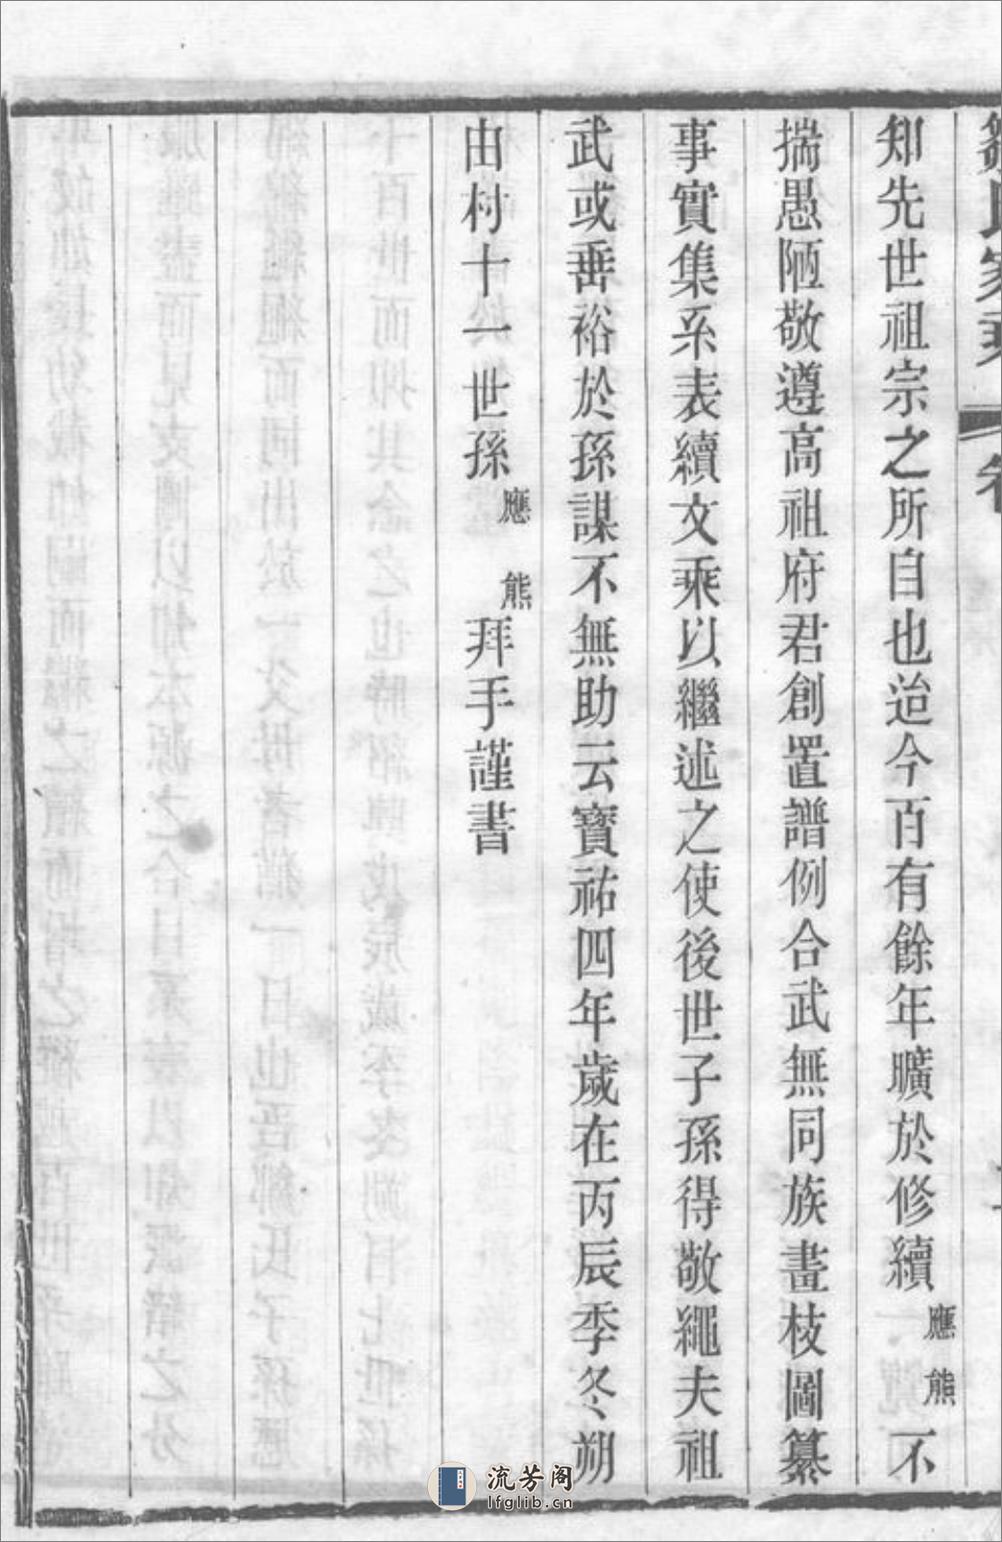 鄒氏家乘
卷
知先世祖宗之所自也迨今百有餘年曠於修續應熊不
揣愚陋敬遵高祖府君創置譜例合武無同族畫枝圖纂
事實集系表續文乘以繼述之使後世子孫得敬繩夫祖
武或垂裕於孫謀不無助云寶祐四年歲在丙辰季冬朔
由村十一世孫應熊拜手謹書
流芳阁
lfglib.cn